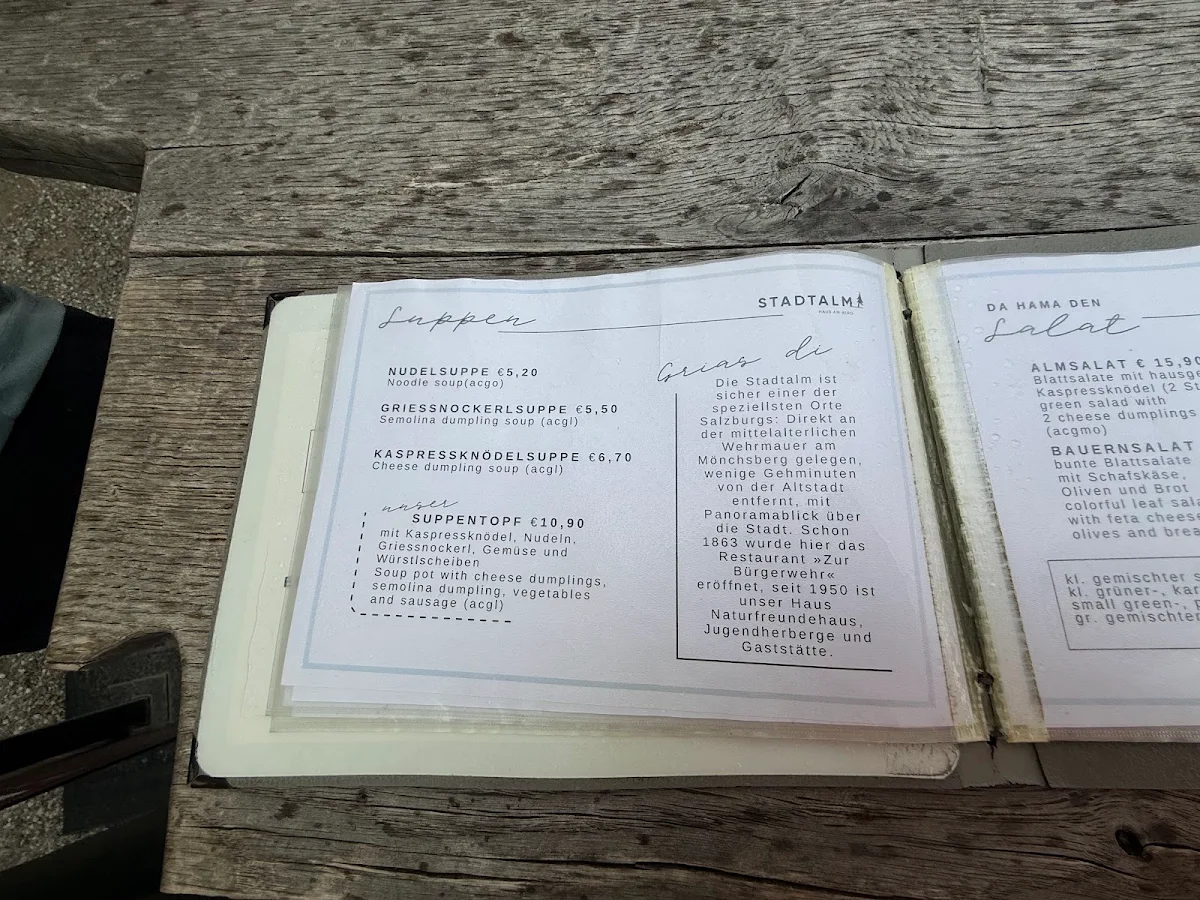 Suppen
STADTALM
HAUS AM BERG
NUDELSUPPE €5,20
Noodle soup(acgo)
GRIESSNOCKERLSUPPE €5,50
Semolina dumpling soup (acgl)
KASPRESSKNÖDELSUPPE €6,70
Cheese dumpling soup (acgl)
unser
SUPPENTOPF €10,90
mit Kaspressknödel, Nudeln,
Griessnockerl, Gemüse und
Würstlscheiben
Soup pot with cheese dumplings,
semolina dumpling, vegetables
and sausage (acgl)
Grias di
Die Stadtalm ist
sicher einer der
speziellsten Orte
Salzburgs: Direkt an
der mittelalterlichen
Wehrmauer am
Mönchsberg gelegen,
wenige Gehminuten
von der Altstadt
entfernt, mit
Panoramablick über
die Stadt. Schon
1863 wurde hier das
Restaurant »Zur
Bürgerwehr«
eröffnet, seit 1950 ist
unser Haus
Naturfreundehaus,
Jugendherberge und
Gaststätte.
DA HAMA DEN
Salat
ALMSALAT € 15,90
Blattsalate mit hausge
Kaspressknödel (2 St
green salad with
2 cheese dumplings
(acgmo)
BAUERNSALAT
bunte Blattsalate
mit Schafskäse,
Oliven und Brot
colorful leaf sala
with feta cheese
olives and brea
kl. gemischter s
kl. grüner-, kar
small green-,
gr. gemischter